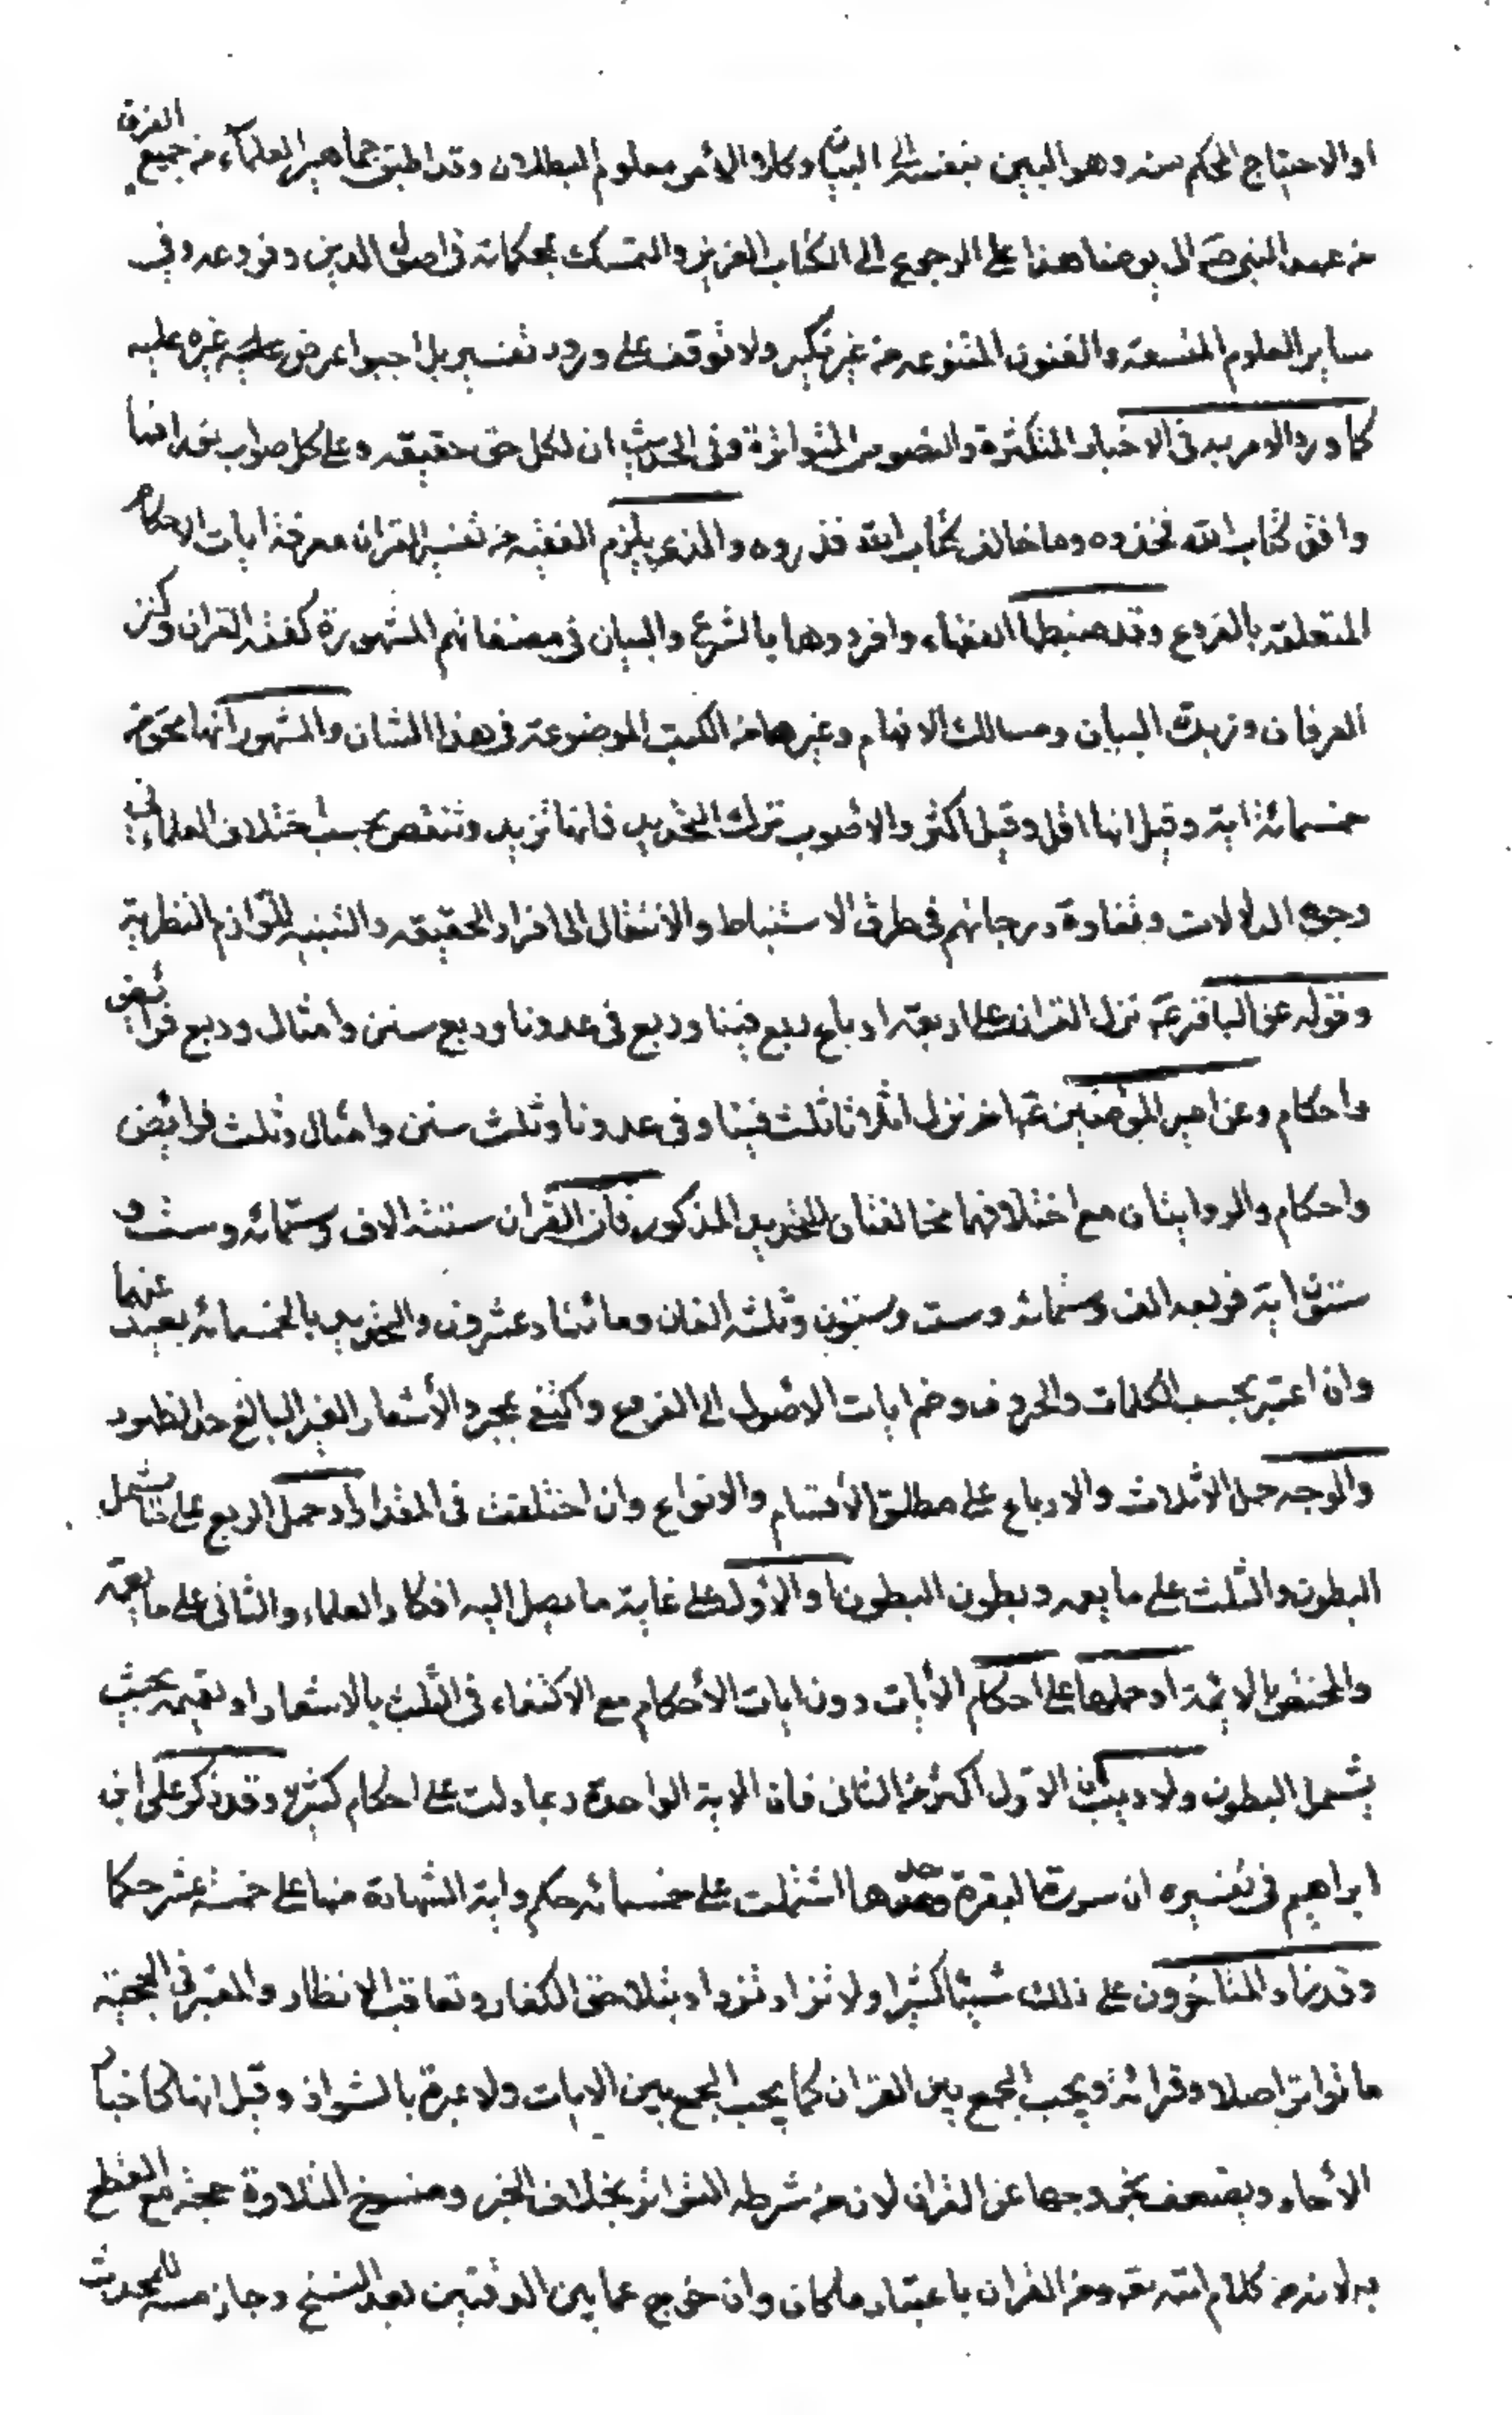 او الاحتياج المحكم منه وهو البين بنفسه الى البيان وكلا الأمر معلوم البطلان وقد اطبق جماهير العلماء من جميع الفرق
من عهد النبي صم الى يومنا هذا على الرجوع الى الكتاب العزيز والتمسك بمحكماته في اصول الدين وفروعه وفي
ساير العلوم المتسعة والفنون المتنوعه من غير نكير ولا توقف على ورود تفسير بل اوجبوا عرض غيره عليه
كما ورد الامر به في الاخبار المتكثرة والنصوص المتواترة وفي الحديث ان لكل حق حقيقه وعلى كل صواب نورا فما
وافق كتاب الله فخذوه وما خالف كتاب الله فذروه والذي يلزم الفقيه من تفسير القران معرفة ايات الاحكام
المتعلقه بالفروع وقد ضبطها الفقهاء وافردوها بالشرح والبيان في مصنفاتهم المشهورة كفقه القران وكنز
العرفان وزبدة البيان ومسالك الافهام وغيرها من الكتب الموضوعة في هذا الشان والمشهور انها نحو من
خمسمائة اية وقيل انها اقل وقيل اكثر والاصوب ترك التحديد فانها تزيد وتنقص بحسب اختلاف العلماء في
وجوه الدلالات وتفاوة درجاتهم في طرق الاستنباط والانتقال الى افراد الحقيقه والتنبيه للوازم النظرية
وقوله عن الباقر عم نزل القران على اربعة ارباع ربع فينا وربع في عدونا وربع سنن وامثال وربع فرائض
واحكام وعن امير المؤمنين عم اخر نزل اثلاثا ثلث فينا وفي عدونا وثلث سنن وامثال وثلث فرايض
واحكام والروايتان مع اختلافهما مخالفتان للتحديد المذكور فان القران ستة الاف وستمائه وست و
ستون اية فربعه الف وستمائه وست وستون وثلثه الفان ومائتنا وعشرون والتحديد بالخمسمائه بعيد عنهما
وان اعتبر بحسب الكلمات والحروف وضم ايات الاصول الى الفروع واكتفى بمجرد الأشعار الغير البالغ حد الظهور
والوجه حمل الاثلاث والارباع على مطلق الأقسام والانواع وان اختلفت في المقدار او حمل الربع على ما يشمل
البطون والثلث على ما يعمه وبطون البطون او الاول على غاية ما يصل اليه افكار العلماء والثاني على ما يعمه
والمختص بالائمة او حملها على احكام الأيات دون ايات الأحكام مع الاكتفاء في الثلث بالاشعار او تعميمه بحيث
يشمل البطون ولا ريب ان الاول اكثر من الثاني فان الاية الواحدة ربما دلت على احكام كثيرة وقد ذكر على ابن
ابراهيم في تفسيره ان سورة البقرة وحدها اشتملت على خمسمائه حكم واية الشهادة منها على خمسة عشر حكما
وقد زاد المتاخرون على ذلك شيئا كثيرا ولا تزاد تزداد بتلاحق الافكار وتعاقب الانظار والمعتبر في الحجية
ما تواتر اصلا وقرائة ويجب الجمع بين القران كما يجب الجمع بين الايات ولا عبرة بالشواذ وقيل انها كاخبار
الأحاد ويضعف بخروجها عن القران لان من شرطه التواتر بخلاف الخبر ومنسوخ التلاوة حجة مع القطع
به لانه من كلام الله تعه ومن القران باعتبار ما كان وان خرج عما بين الدفتين بعد النسخ وجاز مسه للمحدث